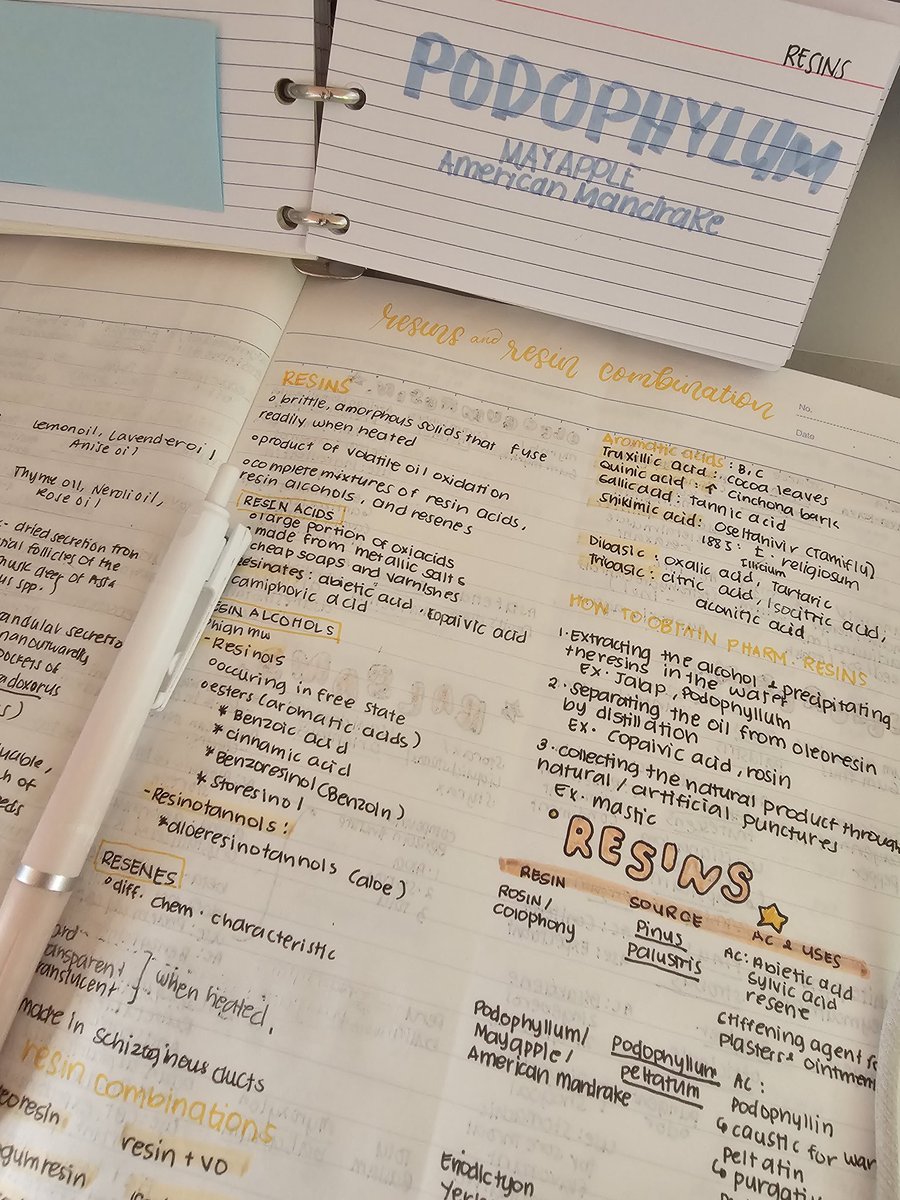 RESINS
PODOPHYLUM
MAYAPPLE
American Mandrake
resins and resin combination
No.
Date
Lemon oil, Lavender oil
Anise oil
Thyme oil, Neroli oil,
Rose oil
- dried secretion from
follicles of the
musk deer of
spp.)
secretion
pockets of
RESINS
brittle, amorphous solids that fuse
readily when heated
product of volatile oil oxidation
complete mixtures of resin acids,
resin alcohols, and resenes
RESIN ACIDS
large portion of oxiacids
made from metallic salts
cheap soaps and varnishes
resinates: abietic acid, copaivic acid
camiphoric acid
RESIN ALCOHOLS
high mw
- Resinols
occuring in free state
esters (aromatic acids)
* Benzoic acid
* cinnamic acid
* Benzoresinol (Benzoin)
* Storesinol
- Resinotannols:
* aloeresinotannols (aloe)
RESENES
diff. chem. characteristic
hard
transparent
translucent
} when heated.
made in schizognous ducts
resin combinations
oleoresin
resin + vo
gumresin
Aromatic acids: B, C
Truxillic acid: cocoa leaves
Quinic acid: cinchona bark
Gallic acid: Tannic acid
Shikimic acid: Oseltanivir (Tamiflu)
1885: E. religiosum
Illicium
Dibasic: oxalic acid, Tartaric
Tribasic: citric acid, Isocitric acid,
aconitic acid
HOW TO OBTAIN PHARM. RESINS
1. Extracting the alcohol & precipitating
the resins in the water
Ex. Jalap, Podophyllum
2. Separating the oil from oleoresin
by distillation
Ex. Copaivic acid, rosin
3. collecting the natural product through
natural / artificial punctures
Ex. mastic
RESINS
RESIN SOURCE AC & USES
ROSIN /
Colophony
Pinus
Palustris
AC: Abietic acid
sylvic acid
resene
stiffening agent
plasters & ointment
Podophyllum/
Mayapple/
American mandrake
Podophyllum
peltatum
AC:
Podophyllin
caustic for
peltatin
Eriodictyon